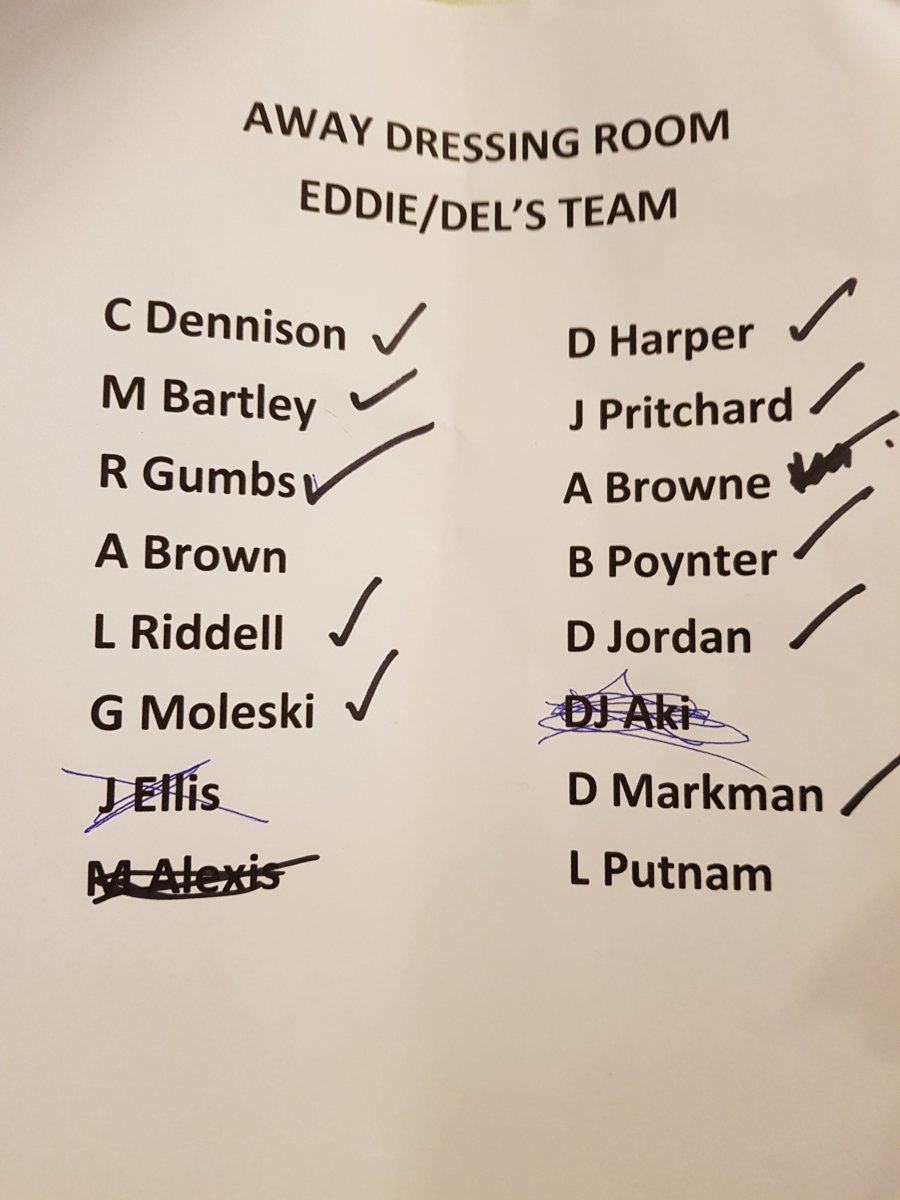 AWAY DRESSING ROOM
EDDIE/DEL'S TEAM
C Dennison ✓
M Bartley ✓
R Gumbs ✓
A Brown
L Riddell ✓
G Moleski ✓
J Ellis
M Alexis
D Harper ✓
J Pritchard ✓
A Browne
B Poynter ✓
D Jordan ✓
DJ Aki
D Markman ✓
L Putnam